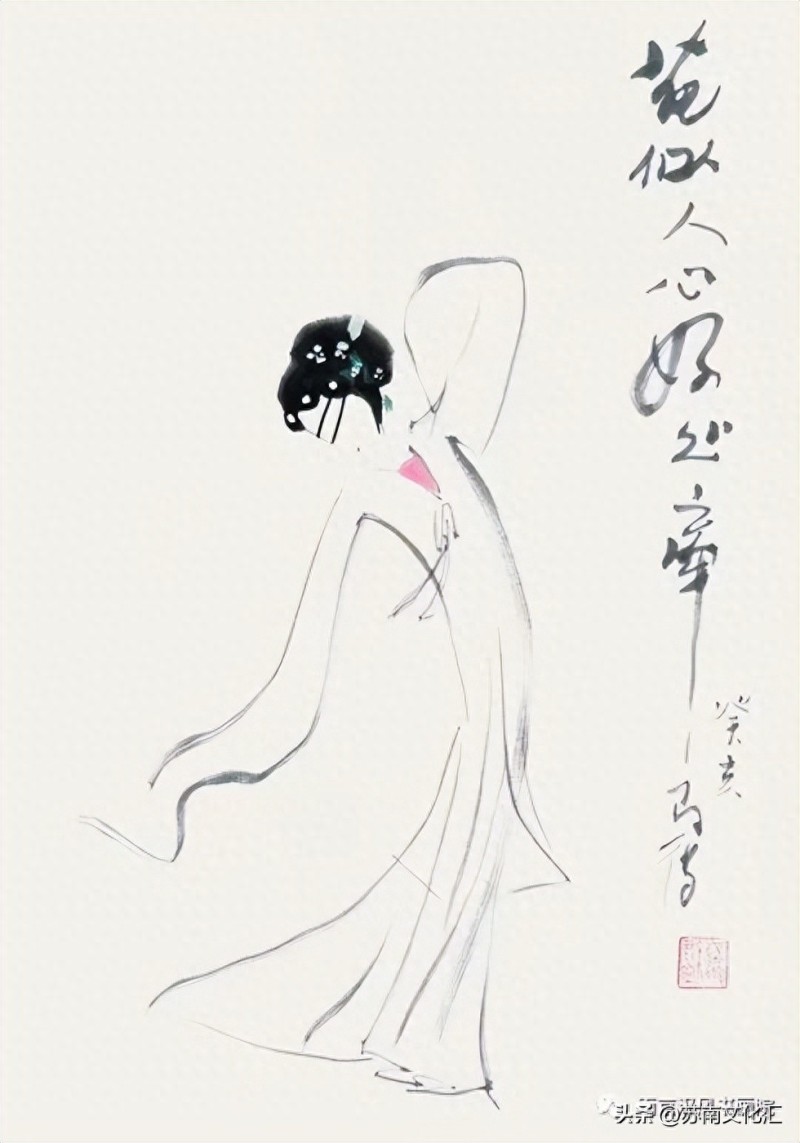 花似人心好处牵
癸亥
马得
头条 @苏南文化汇